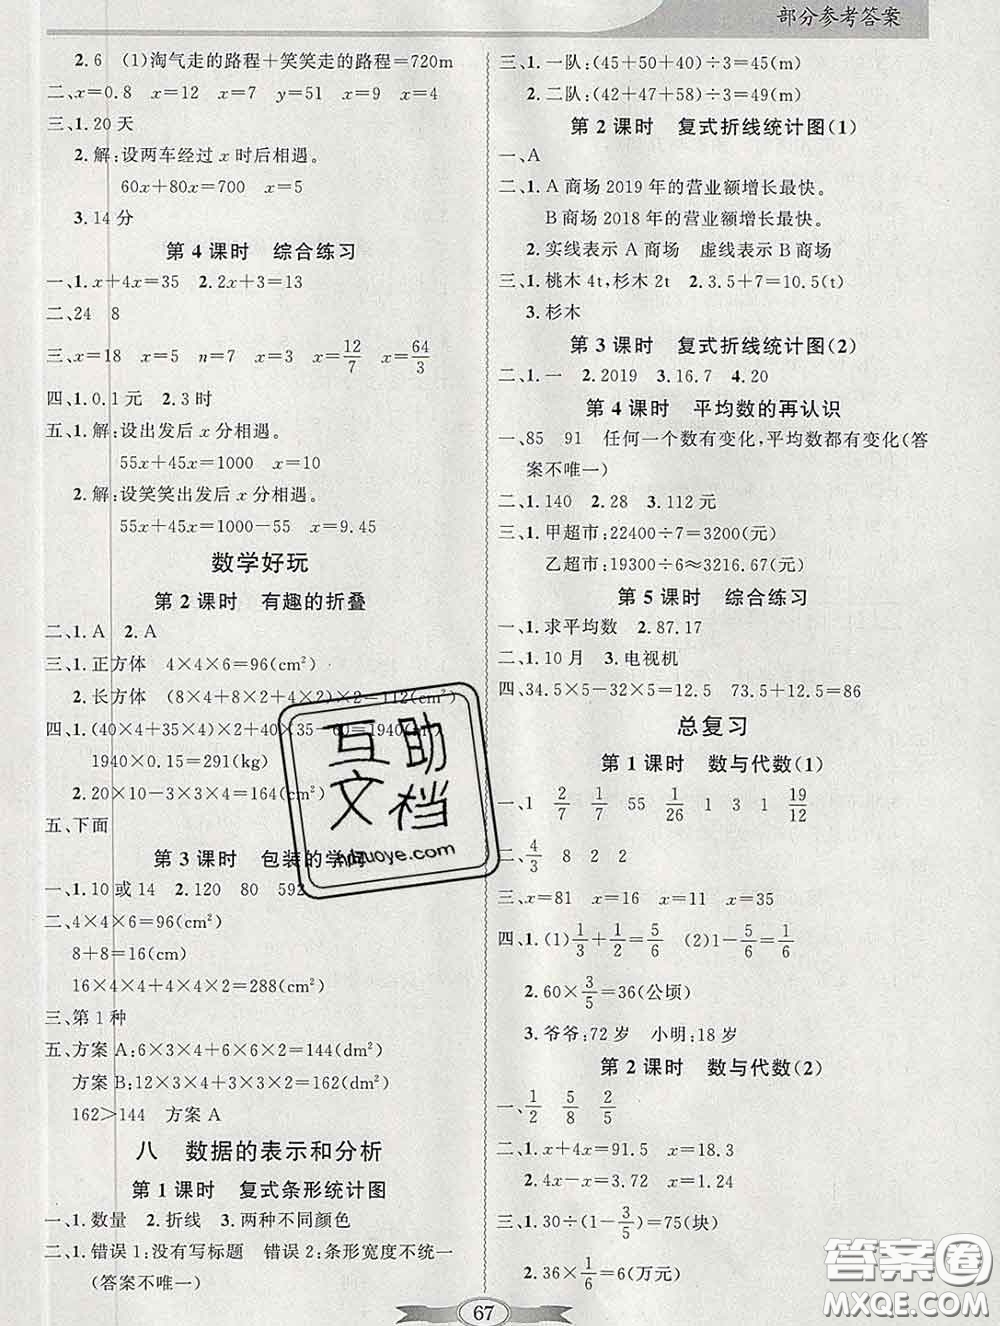 部分参考答案
2.6 (1)淘气走的路程+笑笑走的路程=720m
二、x=0.8 x=12 x=7 y=51 x=9 x=4
三、1.20天
2.解:设两车经过x时后相遇。
60x+80x=700 x=5
3.14分
第4课时 综合练习
一、1.x+4x=35 2.2x+3=13
二、24 8
三、x=18 x=5 n=7 x=12/7 x=64/3
四、1.0.1元 2.3时
五、1.解:设出发后x分相遇。
55x+45x=1000 x=10
2.解:设笑笑出发后x分相遇。
55x+45x=1000-55 x=9.45
数学好玩
第2课时 有趣的折叠
二、1.A 2.A
三、1.正方体 4×4×6=96(cm²)
2.长方体 (8×4+8×2+4×2)×2=112(cm²)
四、1.(40×4+35×4)×2+40×35-60=1940(cm²)
1940×0.15=291(kg)
2.20×10-3×3×4=164(cm²)
五、下面
第3课时 包装的学问
一、1.10或14 2.120 80 592
二、4×4×6=96(cm²)
8+8=16(cm)
16×4×4+4×4×2=288(cm²)
三、第1种
五、方案A:6×3×4+6×6×2=144(dm²)
方案B:12×3×4+3×3×2=162(dm²)
162>144 方案A
八 数据的表示和分析
第1课时 复式条形统计图
一、1.数量 2.折线 3.两种不同颜色
二、1.错误1:没有写标题 错误2:条形宽度不统一
(答案不唯一)
三、1.一队:(45+50+40)÷3=45(m)
2.二队:(42+47+58)÷3=49(m)
第2课时 复式折线统计图(1)
一、A
二、1.A商场2019年的营业额增长最快。
B商场2018年的营业额增长最快。
2.实线表示A商场 虚线表示B商场
三、1.桃木4t,杉木2t 2.3.5+7=10.5(t)
3.杉木
第3课时 复式折线统计图(2)
二、1.一 2.2019 3.16.7 4.20
第4课时 平均数的再认识
一、85 91 任何一个数有变化,平均数都有变化(答
案不唯一)
二、1.140 2.28 3.112元
三、1.甲超市:22400÷7=3200(元)
乙超市:19300÷6≈3216.67(元)
第5课时 综合练习
一、1.求平均数 2.87.17
二、1.10月 3.电视机
四、34.5×5-32×5=12.5 73.5+12.5=86
总复习
第1课时 数与代数(1)
一、1 2/7 1/7 55 1/26 1 3 1 19/12
二、4/3 8 2 2
三、x=81 x=16 x=11 x=8
四、1.(1)1/3+1/2=5/6 (2)1-5/6=1/6
2.60×3/5=36(公顷)
3.爷爷:72岁 小明:18岁
第2课时 数与代数(2)
一、1/2 5/8 2/5
二、1.x+4x=91.5 x=18.3
2.4x-x=3.72 x=1.24
三、1.30÷(1-3/5)=75(块)
2.36×1/6=6(万元)
67
互助文档
hdzuoye.com
答案圈
MXQE.COM